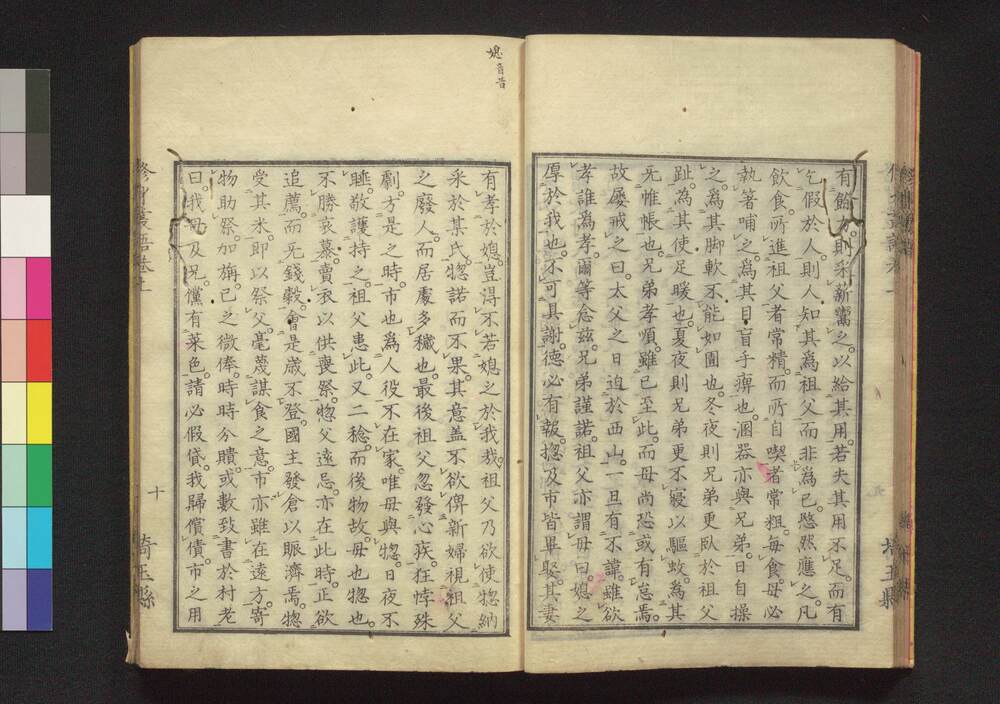 有餘力則采薪鬻之以給其用若夫其用不足而有
乞假於人則人知其爲祖父而非爲已慜然應之凡
飲食所進祖父者常精而所自喫者常粗每食母必
執箸哺之爲其目盲手痺也溷器亦與兄弟日自操
之爲其脚軟不能如圊也冬夜則兄弟更臥於祖父
趾爲其使足暖也夏夜則兄弟更不寢以驅蚊爲其
无帷帳也兄弟孝順雖已至此而母尚恐或有怠焉
故屢戒之曰太父之日迫於西山一旦有不諱雖欲
孝誰爲孝爾等怠玆兄弟謹諾祖父亦謂母曰媳之
厚於我也不可具謝德必有報揔及市皆畢娶其妻
媳音昔
有孝於媳豈得不若媳之於我哉祖父乃欲使揔納
采於某氏揔諾而不果其意盖不欲俾新婦視祖父
之廢人而居處多穢也最後祖父忽發心疾狂悖殊
劇方是之時市也爲人役不在家唯母與揔日夜不
睡敬護持之祖父患此又二稔而後物故母也揔也
不勝哀慕賣衣以供喪祭揔父遠忌亦在此時正欲
追薦而无錢穀會是歳不登國主發倉以賑濟焉揔
受其米即以祭父毫蔑謀食之意市亦雖在遠方寄
物助祭加旃已之微俸時時分贐或數致書於村老
曰我母及兄儻有菜色請必假貸我歸償債市之用
修身叢語卷上
十
埼玉縣
埼玉縣